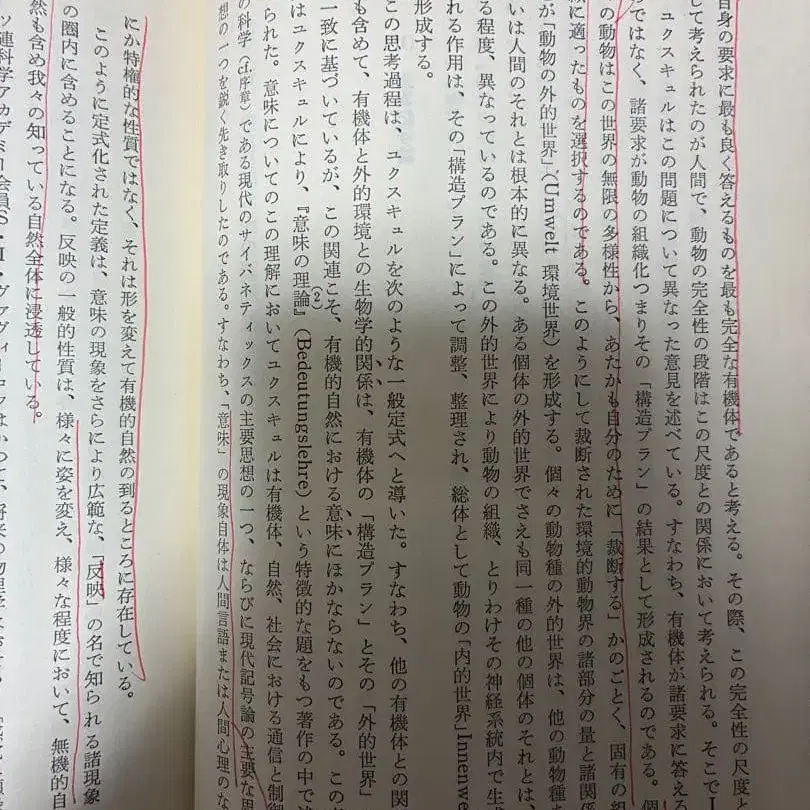 自身の要求に最も良く答えるものを最も完全な有機体であると考える。その際、この完全性の尺度
して考えられたのが人間で、動物の完全性の段階はこの尺度との関係において考えられる。そこで
ユクスキュルはこの問題について異なった意見を述べている。すなわち、有機体が諸要求に答え
ではなく、諸要求が動物の組織化つまりその「構造プラン」の結果として形成されるのである。個
の動物はこの世界の無限の多様性から、あたかも自分のために「裁断する」かのごとく、固有の組
に適ったものを選択するのである。このようにして裁断された環境的動物界の諸部分の量と諸関係
が「動物の外的世界」(Umwelt 環境世界)を形成する。個々の動物種の外的世界は、他の動物種
いは人間のそれとは根本的に異なる。ある個体の外的世界でさえも同一種の他の個体のそれとは、
る程度、異なっているのである。この外的世界により動物の組織、とりわけその神経系統内で生
れる作用は、その「構造プラン」によって調整、整理され、総体として動物の「内的世界」Innenwe
形成する。
この思考過程は、ユクスキュルを次のような一般定式へと導いた。すなわち、他の有機体との関
も含めて、有機体と外的環境との生物学的関係は、有機体の「構造プラン」とその「外的世界」
一致に基づいているが、この関連こそ、有機的自然における意味にほかならないのである。この
はユクスキュルにより、『意味の理論』(2)(Bedeutungslehre)という特徴的な題をもつ著作の中で
られた。意味についてのこの理解においてユクスキュルは有機体、自然、社会における通信と制御
の科学(cf.序章)である現代のサイバネティックスの主要思想の一つ、ならびに現代記号論の主要な思
想の一つを鋭く先き取りしたのである。すなわち、「意味」の現象自体は人間言語または人間心理のな
にか特権的な性質ではなく、それは形を変えて有機的自然の到るところに存在している。
このように定式化された定義は、意味の現象をさらにより広範な、「反映」の名で知られる諸現象
の圏内に含めることになる。反映の一般的性質は、様々に姿を変え、様々な程度において、無機的自
然も含め我々の知っている自然全体に浸透している。
ソ連科学アカデミー会員S・I・ヴァヴィーロフはかつて、将来の物理学に